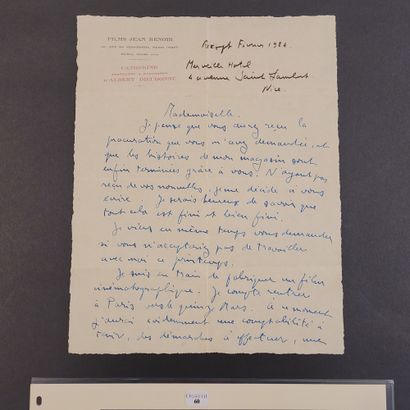 FILMS JEAN RENOIR
CATHERINE
D'ALBERT DIEUDONNÉ
Février 1924.
Merveille Hotel
avenue Saint Lambert
Nice
Mademoiselle.
Je pense que vous avez reçu la
procuration que vous m'avez demandée et
que les histoires de mon magasin sont
enfin terminées grâce à vous. N'ayant pas
reçu de vos nouvelles, je me décide à vous
écrire. Je serais heureux de savoir que
tout cela est fini et bien fini.
Je viens en même temps vous demander
si vous n'accepteriez pas de travailler
avec moi ce printemps.
Je suis en train de fabriquer un film
cinématographique. Je compte rentrer
à Paris vers le quinze Mars. A ce moment
j'aurai évidemment une comptabilité à
tenir, des démarches à effectuer, une
60